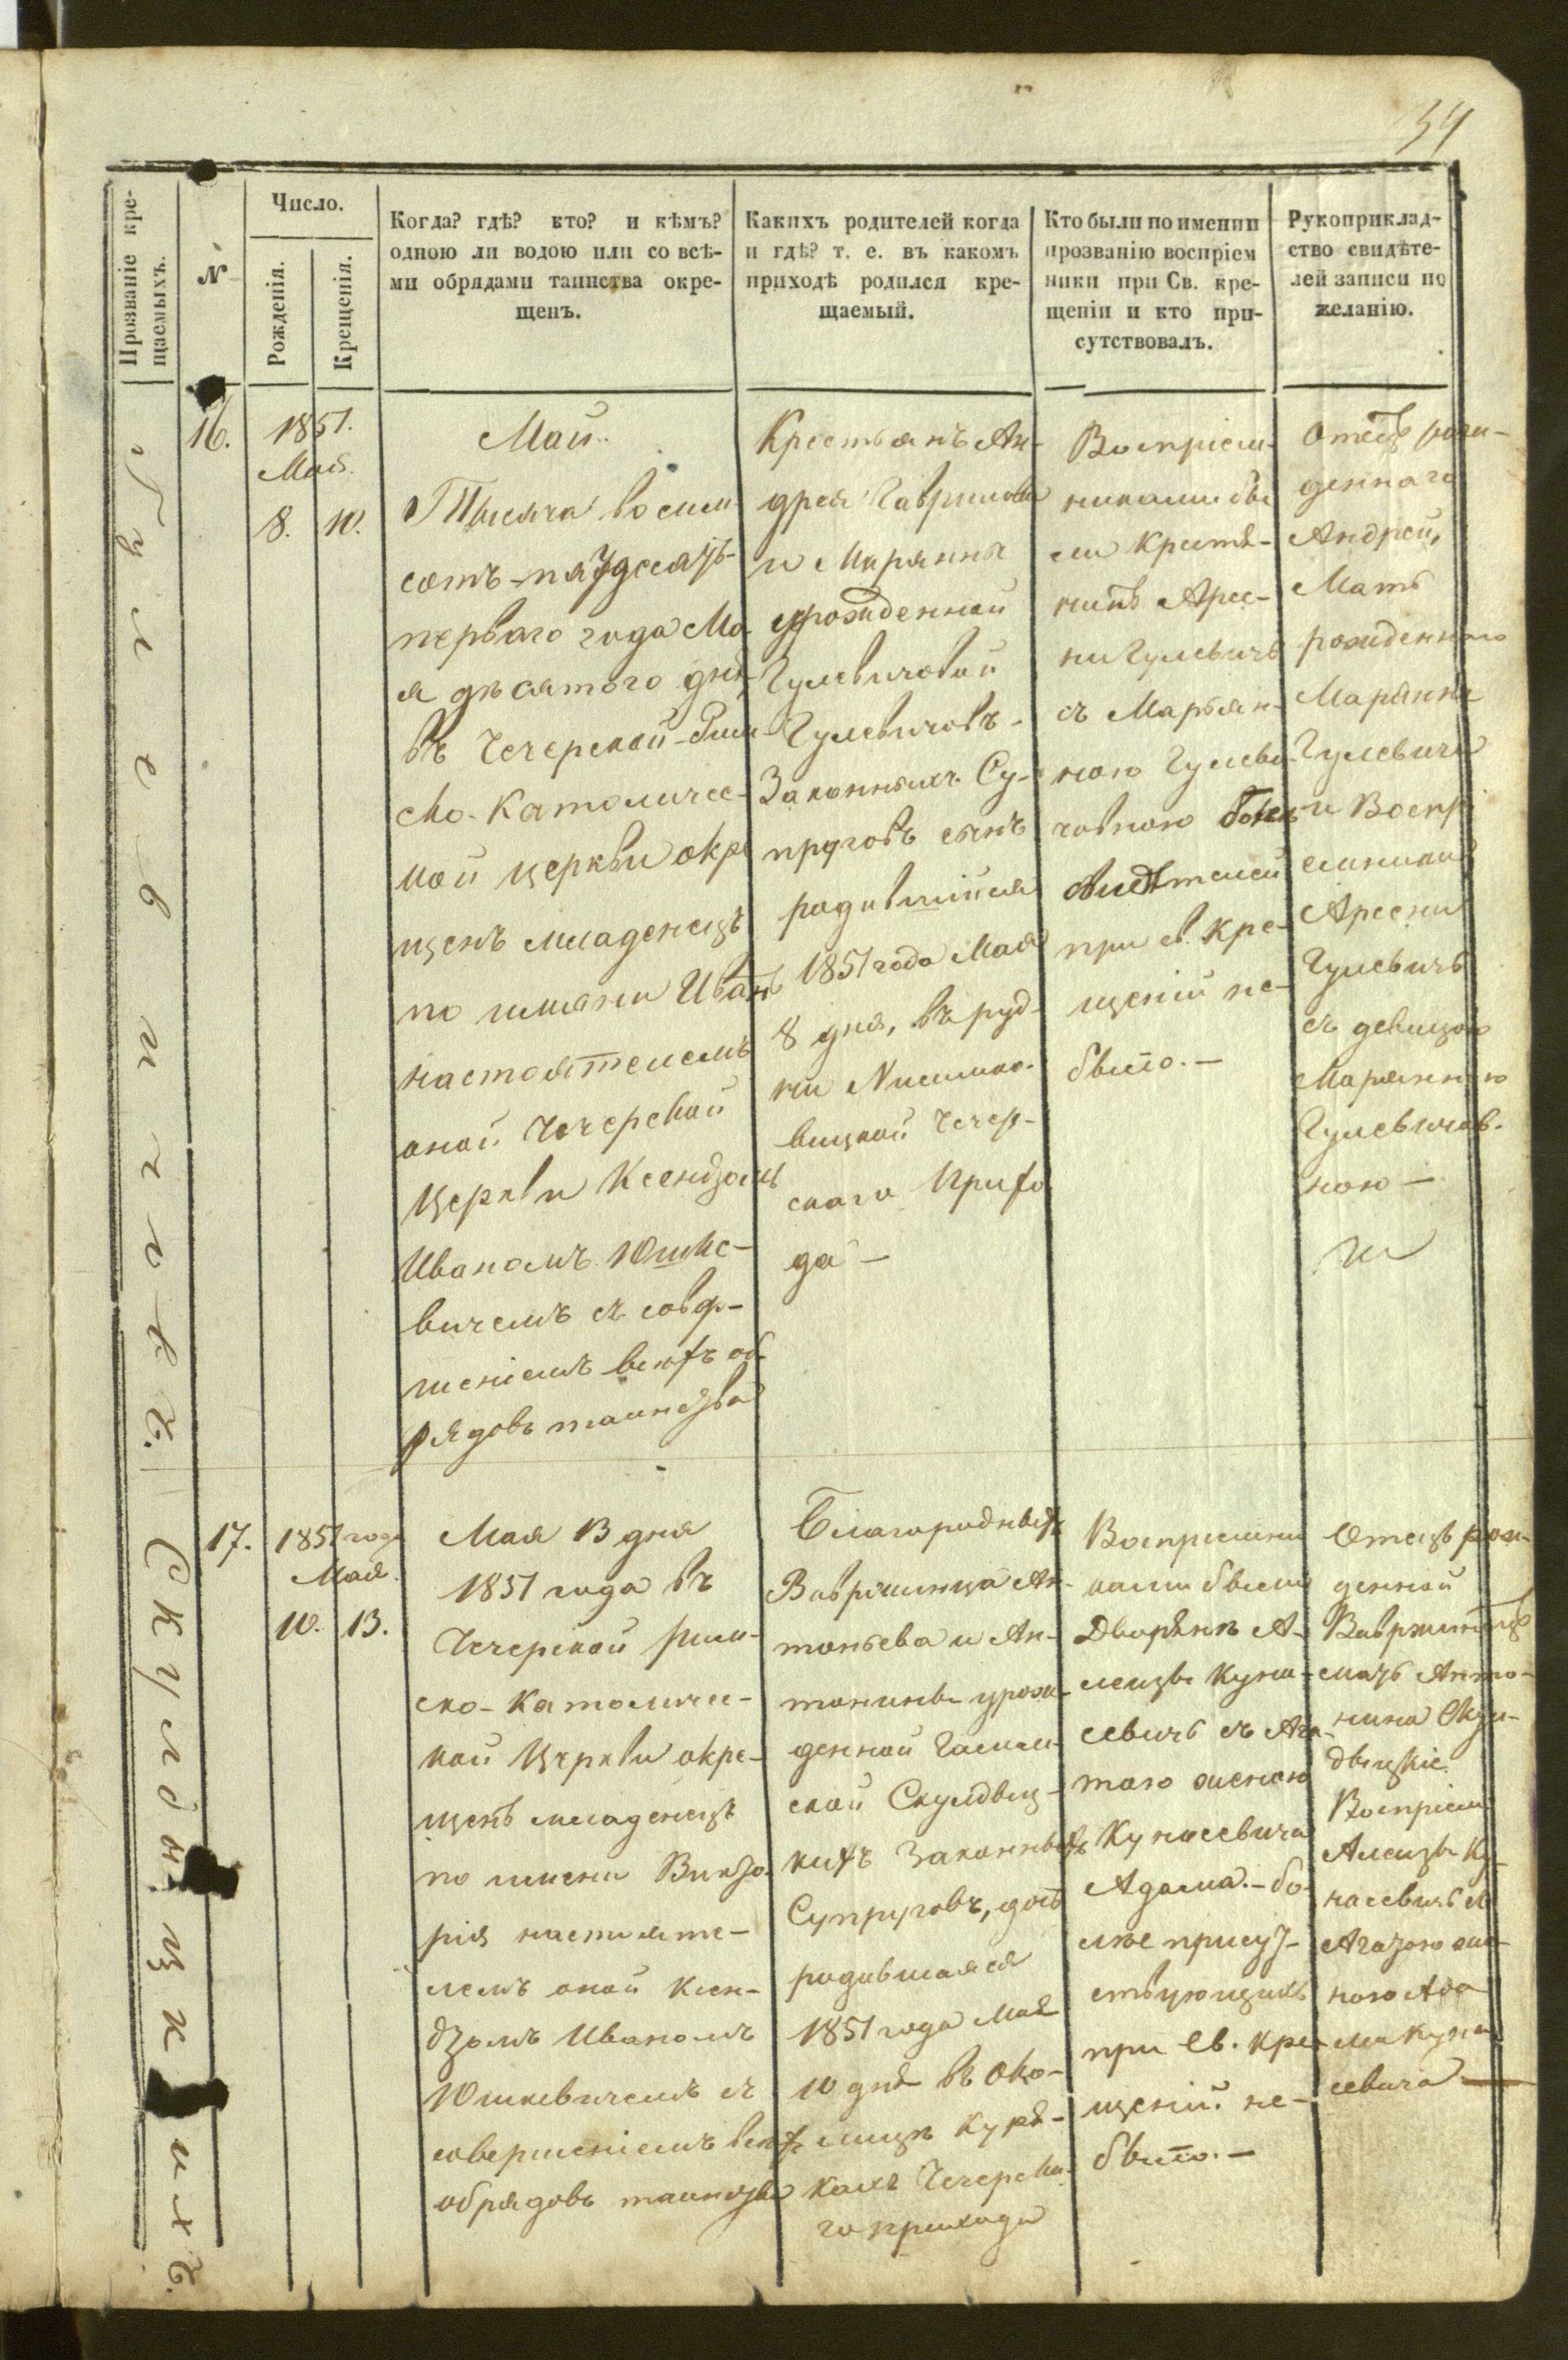 54
Прозваніе кре-
щаемыхъ.
№
Число.
Рожденія.
Крещенія.
Когда? гдѣ? кто? и кѣмъ?
одною ли водою или со всѣ-
ми обрядами таинства окре-
щенъ.
Какихъ родителей когда
и гдѣ? т. е. въ какомъ
приходѣ родился кре-
щаемый.
Кто были по имении
прозванію воспріем
ники при Св. кре-
щеніи и кто при-
сутствовалъ.
Рукоприклад-
ство свидѣте-
лей записи по
желанію.
Гулевичовъ.
16.
1851.
Мая.
8.
10.
Май.
Тысяча восем
сотъ-пятдесятъ
перваго года Ма-
я десятого дня
въ Чечерской-Рим
ско-Католичес-
кой церкви окре
щенъ младенецъ
по имяни Иванъ
настоятелемъ
оной Чечерской
Церкви Ксендзомъ
Иваномъ Юшке-
вичемъ съ совер-
шеніемъ всехъ об
рядовъ таинства
Крестьянъ Ан-
дрея Гаврилова
и Марянны
урожденной
Гулевичовой
Гулевичовъ-
Законныхъ Су-
пруговъ сынъ
родившійся
1851 года Мая
8 дня, въ руд-
ни
вицкой Чечер-
скаго Прихо
да —
Воспріем-
никами бы
ли Крестя-
нинъ Арсе-
ни Гулевичъ
съ Марьян-
ною Гулеви-
човною болѣе
свидѣтелей
при св. кре-
щеніи не-
было. —
Отецъ рож-
деннаго
Андрей,
Мать
рожденнаго
Марянна
Гулевичи
и Воспрі
емники
Арсени
Гулевичъ
съ девицою
Марянною
Гулевичов-
ною —
Скулдыцкихъ.
17.
1851 года
Мая.
10.
13.
Мая 13 дня
1851 года въ
Чечерской Рим-
ско-Католичес-
кой Церкви окре-
щенъ младенецъ
по имени Викто-
рія настояте-
лемъ оной Ксен-
дзомъ Иваномъ
Юшкевичемъ съ
совершеніемъ всехъ
обрядовъ таинства
Благородныхъ
Вавржинца Ан-
тоньева и Ан-
тонины урож-
денной
ской Скулдыц-
кихъ Законныхъ
Супруговъ, дочь
родившаяся
1851 года Мая
10 дня въ Око-
лицѣ Куря-
кахъ Чечерска
го прихода
Воспреемни
ками были
Дворянъ А-
Куна-
севичъ съ Ага-
тою женою
Кунасевича
Адама. — бо-
лѣе присут-
ствующихъ
при Св. Кре-
щеніи не-
было. —
Отецъ рож-
денной
Вавржинецъ
мать Анто-
нина Скул-
дыцкіе.
Воспріем
Ку-
насевичъ съ
Агатою же-
ною Ада
ма Куна
севича —